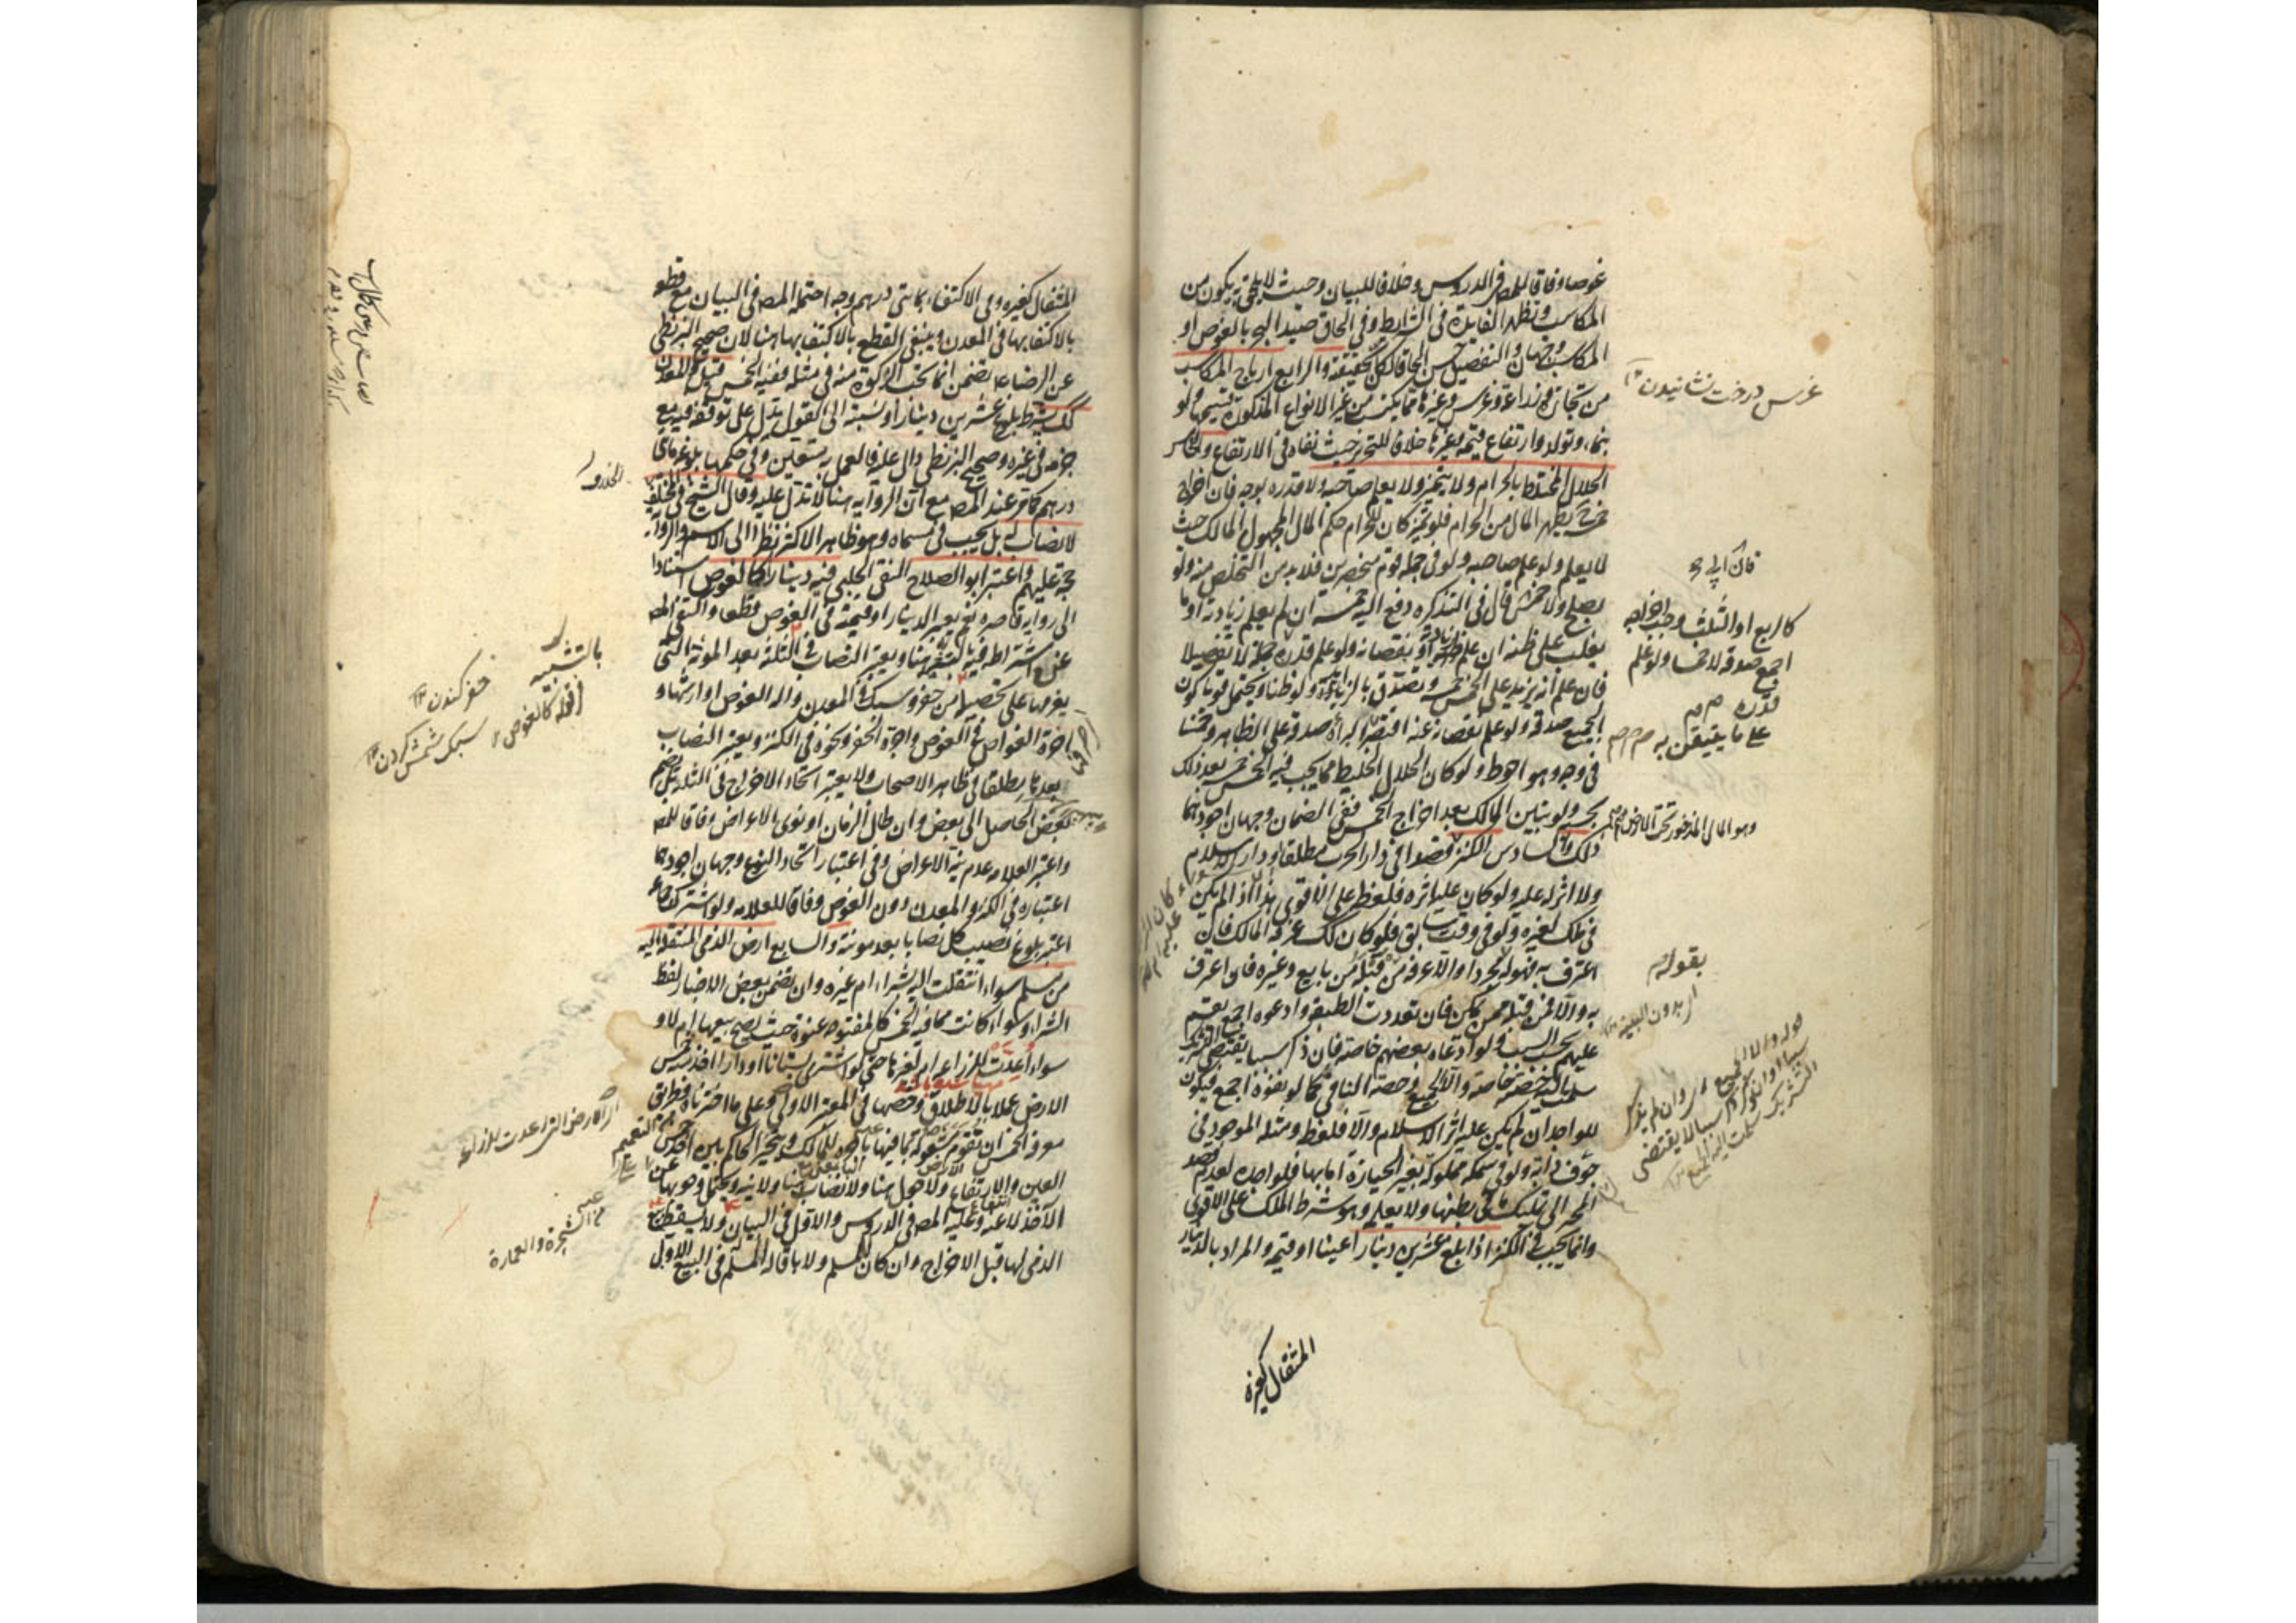 غوصا وفاقا للمص في الدروس وخلافا للبيان وحيث لا يلحق به يكون من
المكاسب وتظهر الفايدة في الشرايط وفي الحاق صيد البحر بالغوص او
المكاسب وجهان والتفصيل حسن الحاقا لكل بحقيقته والرابع ارباح المكاسب
من تجارة وزراعة وغرس وغيرها مما يكتسب من غير الانواع المذكورة قسيمها ولو
بنماء وتولد وارتفاع قيمة وغيرها خلافا للتحرير حيث نفاه في الارتفاع والخامس
الحلال المختلط بالحرام ولا يتميز ولا يعلم صاحبه ولا قدره بوجه فان اخراج
خمسه يطهر المال من الحرام فلو تميز كان للحرام حكم المال المجهول المالك حيث
لا يعلم ولو علم صاحبه ولو في جملة قوم منحصرين فلا بد من التخلص منه ولو
بصلح ولا خمس قال في التذكره دفع اليه خمسه ان لم يعلم زيادة او ما
يغلب على ظنه ان علم زيادته او نقصانه ولو علم قدره جملة لا تفصيلا
فان علم انه يزيد على الخمس خمسه وتصدق بالزايد ولو ظنا ويحتمل قويا كون
الجميع صدقة ولو علم نقصانه عنه اقتصر على ما تتيقن به البرأة صدقة على الظاهر وخمسا
في وجه وهو احوط ولو كان الحلال الخليط مما يجب فيه الخمس خمسه بعد ذلك
بحسبه ولو تبين المالك بعد اخراج الخمس ففي الضمان وجهان اجودهما
ذلك والسادس الكنز مأخوذا في دار الحرب مطلقا او دار الاسلام
ولا اثر له عليه ولو كان عليه اثره فلقطة على الاقوى هذا اذا لم يكن
في ملك لغيره ولو في وقت سابق فلو كان كك عرفه المالك فان
اعترف به فهو له مجردا والا عرفه من قبله من بايع وغيره فان اعترف
به والا فمن قبله ممن يمكن فان تعددت الطبقة وادعوه اجمع يقسم
عليهم بحسب السبب ولو ادعاه بعضهم خاصة فان ذكر سببا يقتضي التشريك
سلمت اليه حصته خاصة والا الجميع وحصة الباقي كما لو نفوه اجمع فيكون
للواجد ان لم يكن عليه اثر الاسلام والا فلقطة ومثله الموجود في
جوف دابة ولو في سمكة مملوكة بغير الحيازة اما بها فلواجده لعدم قصد
المحيز الى تملك ما في بطنها ولا يعلمه وهو شرط الملك على الاقوى
وانما يجب في الكنز اذا بلغ عشرين دينارا عينا او قيمة والمراد بالدينار
المثقال كغيره
غرس درخت نشانيدن
كالربع او الثلث وجب اخراجه
اجمع صدقة لا خمسا ولو علم
قدره
وهو المال المذخور تحت الارض
بقوله
اي بدون البينة
المثقال كغيره وفي الاكتفاء بمائتي درهم وجه احتمله المص في البيان مع قطعه
بالاكتفاء بها في المعدن وينبغي القطع بالاكتفاء بها هنا لان صحيح البزنطي
عن الرضا ع تضمن انما يجب الزكوة منه في مثله ففيه الخمس قيل والمعدن
كك يشترط بلوغ عشرين دينارا ونسبته الى القول تدل على توقفه فيه مع
جزمه في غيره وصحيح البزنطي دال عليه فالعمل به متعين وفي حكمها بلوغه مائتي
درهم كما مر عند المص مع ان الروايه هنا لا تدل عليه وقال الشيخ في الخلاف
لا نصاب له بل يجب في مسماه وهو ظاهر الاكثر نظرا الى الاسم والرواية
حجة عليهم واعتبر ابو الصلاح التقي الحلبي فيه دينارا كالغوص استنادا
الى رواية قاصرة نعم يعتبر الدينار او قيمته في الغوص قطعا واكتفى المص
عن اشتراطه فيه بالتشبيه هنا ويعتبر النصاب في الثلثة بعد المؤنة التي
يغرمها على تحصيله من حفر وسبك في المعدن وآلة الغوص او ارشها و
اجرة الغواص في الغوص واجرة الحفر ونحوه في الكنز ويعتبر النصاب
بعدها مطلقا في ظاهر الاصحاب ولا يعتبر اتحاد الاخراج في الثلثة بل يضم
بعض الحاصل الى بعض وان طال الزمان او نوى الاعراض وفاقا للمص
واعتبر العلامه عدم نية الاعراض وفي اعتبار اتحاد النوع وجهان اجودهما
اعتباره في الكنز والمعدن دون الغوص وفاقا للعلامه ولو اشترك جماعة
اعتبر بلوغ نصيب كل نصابا بعد مؤنته والسابع ارض الذمي المنتقلة اليه
من مسلم سواء انتقلت اليه بشراء ام غيره وان تضمن بعض الاخبار لفظ
الشراء وسواء كانت مما فيه الخمس كالمفتوحة عنوة حيث يصح بيعها ام لا و
سواء اعدت للزراعة ام لغيرها حتى لو اشترى بستانا او دارا اخذ منه خمس
الارض عملا بالاطلاق وخصها في المعتبر بالاولى وعلى ما اخترناه فطريق
معرفة الخمس ان تقوم مشغولة بما فيها باجرة للمالك ويتخير الحاكم بين اخذ خمس
العين والارتفاع ولا حول هنا ولا نصاب ولا نية ويحتمل وجوبها عن
الآخذ لا عنه وعليه المص في الدروس والاول في البيان ولا يسقط ببيع
الذمي لها قبل الاخراج وان كان لمسلم ولا باقالة المسلم في البيع الاول
بالتشبيه
اي قوله كالغوص
حفر كندن
سبك شمش كردن
اي الارض التي اعدت للزراعة
من الشجرة والعمارة